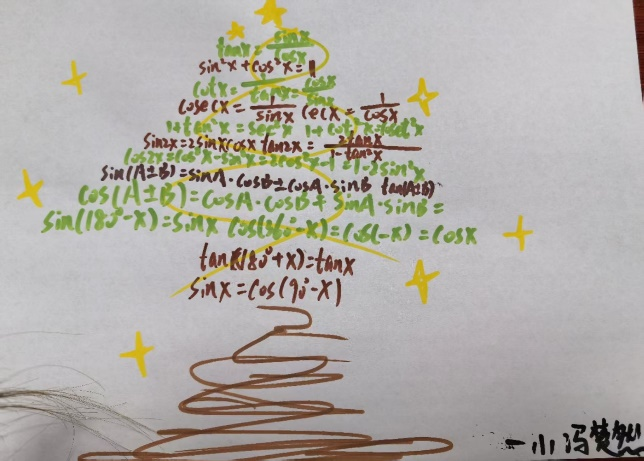 tanx = sinx/cosx
sin²x + cos²x = 1
cotx = 1/tanx = cosx/sinx
cosecx = 1/sinx secx = 1/cosx
1+tan²x = sec²x 1+cot²x = cset²x
sin2x = 2sinxcosx tan2x = 2tanx/1-tan²x
cos2x = cos²x - sin²x = 2cos²x - 1 = 1 - 2sin²x
sin(A±B) = sinA·cosB ± cosA·sinB tan(A±B)
cos(A±B) = cosA·cosB ∓ sinA·sinB =
sin(180°-x) = sinx cos(360°-x) = cos(-x) = cosx
tan(180°+x) = tanx
sinx = cos(90°-x)
一小冯